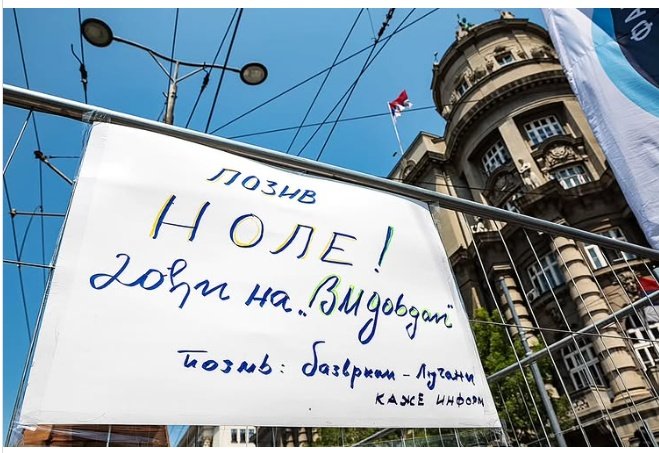 ПОЗИВ
НОЛЕ!
дођи на „Видовдан"
позив: – Лучани
КАЖЕ ИНФОРМ
ФА